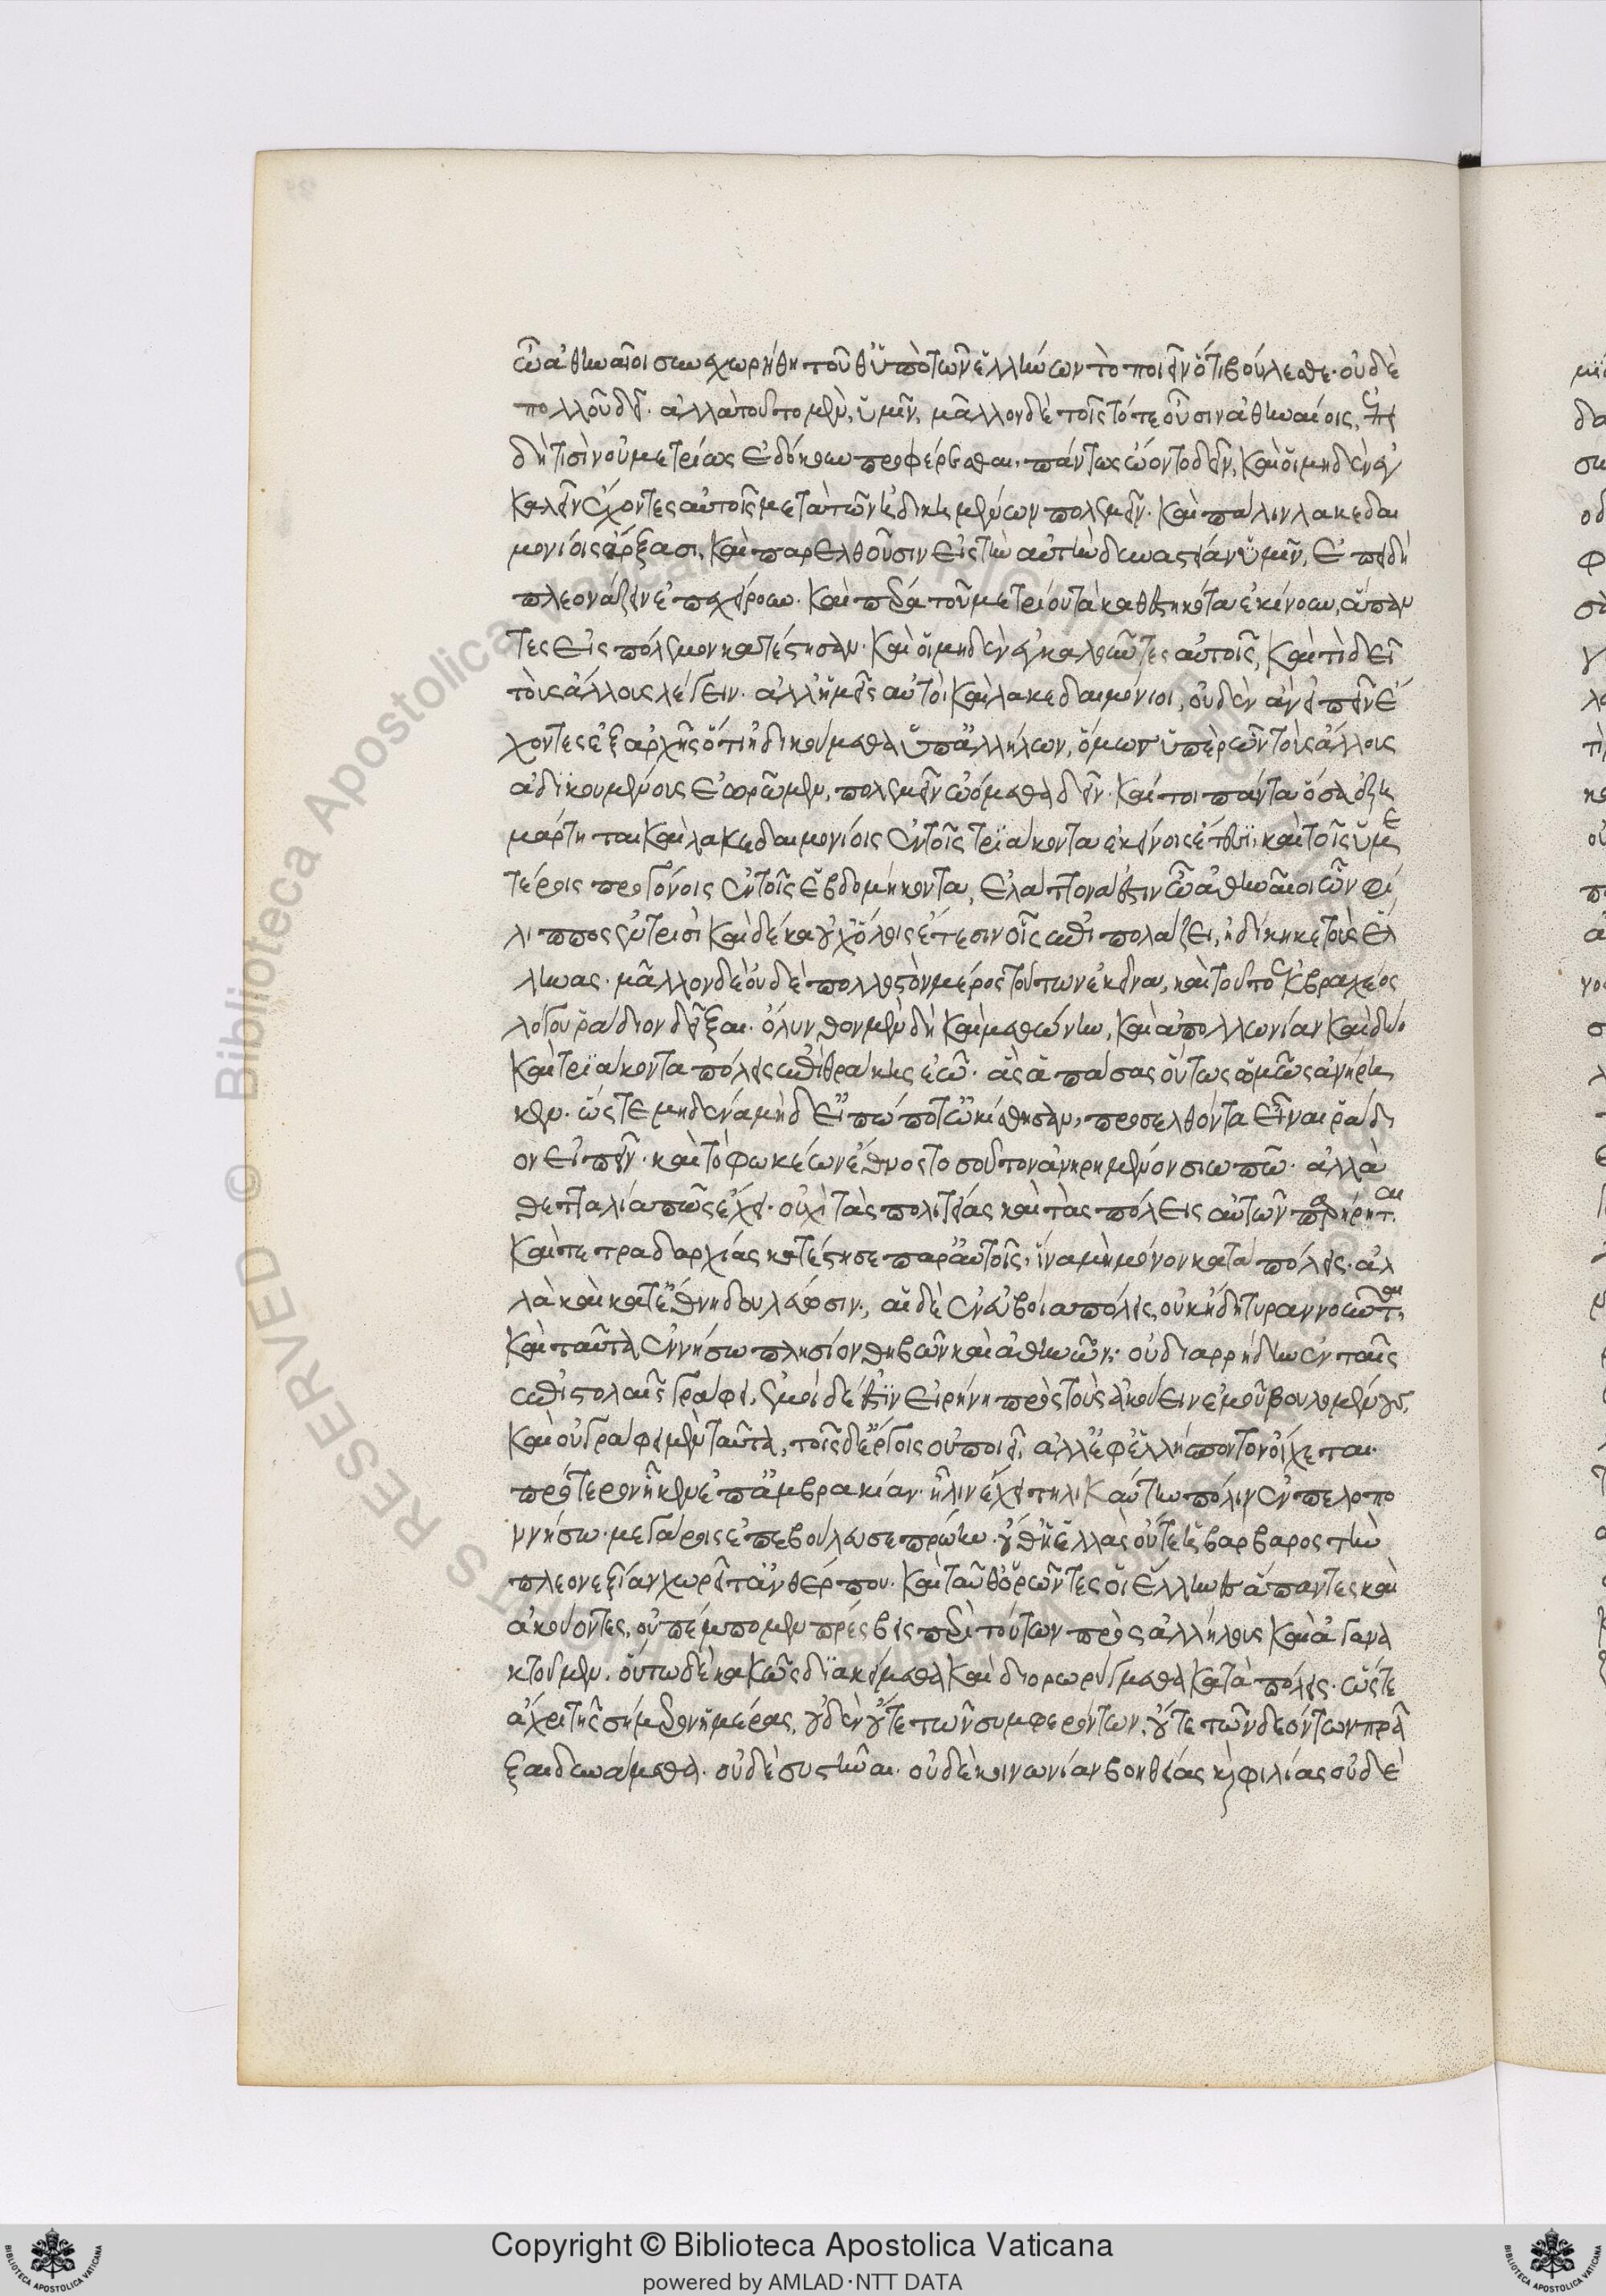 ὦ ἀθηναῖοι συνεχωρήθη τοῦθ ὑπὸ τῶν ἑλλήνων τὸ ποιεῖν ὅτι βούλεσθε. οὐδὲ
πολλοῦ δεῖ. ἀλλὰ τοῦτο μὲν, ὑμῖν, μᾶλλον δὲ τοῖς τότε οὖσιν ἀθηναίοις, ἐπει
δή τισὶν οὐ μετρίως ἐδόκουν προσφέρεσθαι. πάντες ὤοντο δεῖν, καὶ οἱ μηδὲν ἐγ
καλεῖν ἔχοντες αὐτοῖς μετὰ τῶν ἠδικημένων πολεμεῖν. καὶ πάλιν λακεδαι
μονίοις ἄρξασι, καὶ παρελθοῦσιν εἰς τὴν αὐτὴν δυναστείαν ὑμῖν, ἐπειδὴ
πλεονάζειν ἐπεχείρουν. καὶ πέρα τοῦ μετρίου τὰ καθεστηκότα ἐκίνουν, ἅπαν
τες εἰς πόλεμον κατέστησαν. καὶ οἱ μηδὲν ἐγκαλοῦντες αὐτοῖς, καὶ τί δεῖ
τοὺς ἄλλους λέγειν. ἀλλ ἡμεῖς αὐτοὶ καὶ λακεδαιμόνιοι, οὐδὲν ἂν εἰπεῖν ἔ
χοντες ἐξ αρχῆς ὅτι ἠδικούμεθα ὑπ ἀλλήλων, ὅμως ὑπὲρ ὧν τοὺς ἄλλους
ἀδικουμένους ἑωρῶμεν, πολεμεῖν ὠόμεθα δεῖν. καίτοι πάντα ὅσα ἐξη
μάρτηται καὶ λακεδαιμονίοις ἐν τοῖς τριάκοντα ἐκείνοις ἔτεσι, καὶ τοῖς ὑμε
τέροις προγόνοις ἐν τοῖς ἑβδομήκοντα, ἐλάττονα ἐστιν ὦ ἀθηναῖοι ὧν φί
λιππος ἐν τρισὶ καὶ δέκα οὐχ ὅλοις ἔτεσιν οἷς ἐπιπολάζει, ἠδίκηκε τοὺς ἕλ
ληνας. μᾶλλον δὲ οὐδὲ πολλοστὸν μέρος τούτων ἐκεῖνα, καὶ τοῦτο ἐκ βραχέος
λόγου ῥάδιον δεῖξαι. ὄλυνθον μὲν δὴ καὶ μεθώνην, καὶ ἀπολλωνίαν καὶ δύο
καὶ τριάκοντα πόλεις ἐπὶ θράκης ἐῶ. ἃς ἁπάσας οὕτως ὠμῶς ἀνήρη
κεν. ὥστε μηδένα μήδ εἰ πώποτ ὠικίσθησαν, προσελθόντα εἶναι ῥάδι
ον εἰπεῖν. καὶ τὸ φωκέων ἔθνος τοσοῦτον ἀνηρημένον σιωπῶ. ἀλλὰ
θετταλία πῶς ἔχει. οὐχὶ τὰς πολιτείας καὶ τὰς πόλεις αὐτῶν παρήρηται
καὶ τετραδαρχίας κατέστησε παρ αὐτοῖς. ἵνα μὴ μόνον κατὰ πόλεις. ἀλ
λὰ καὶ κατ ἔθνη δουλεύωσιν. αἱ δὲ ἐν εὐβοία πόλεις, οὐκ ἤδη τυραννοῦνται
καὶ ταῦτα ἐν νήσω πλησίον θηβῶν καὶ ἀθηνῶν. οὐ διαρρήδην ἐν ταῖς
ἐπιστολαῖς γράφει, ἐμοὶ δέ ἐστιν εἰρήνη πρὸς τοὺς ἀκούειν ἐμοῦ βουλομένους,
καὶ οὐ γράφει μὲν ταῦτα, τοῖς δ ἔργοις οὐ ποιεῖ, ἀλλ ἐφ ἑλλήσποντον οἴχεται.
πρότερον ἧκεν ἐπ ἀμβρακίαν. ἦλιν ἔχει τηλικαύτην πόλιν ἐν πελοπο
ννήσω. μεγάροις ἐπεβούλευσε πρώην. οὔθ ἡ ἑλλὰς οὔτε ἡ βάρβαρος τὴν
πλεονεξίαν χωρεῖ τἀνθρώπου. καὶ ταῦθ ὁρῶντες οἱ ἕλληνες ἅπαντες καὶ
ἀκούοντες, οὐ πέμπομεν πρέσβεις περὶ τούτων πρὸς ἀλλήλους καὶ ἀγανα
κτοῦμεν. οὕτω δὲ κακῶς διακείμεθα καὶ διορωρύγμεθα κατὰ πόλεις. ὥστε
ἄχρι τῆς σήμερον ἡμέρας, οὐδὲν οὔτε τῶν συμφερόντων, οὔτε τῶν δεόντων πρᾶ
ξαι δυνάμεθα. οὐδὲ συστῆναι. οὐδὲ κοινωνίαν βοηθείας καὶ φιλίας οὐδε
Copyright © Biblioteca Apostolica Vaticana
powered by AMLAD·NTT DATA